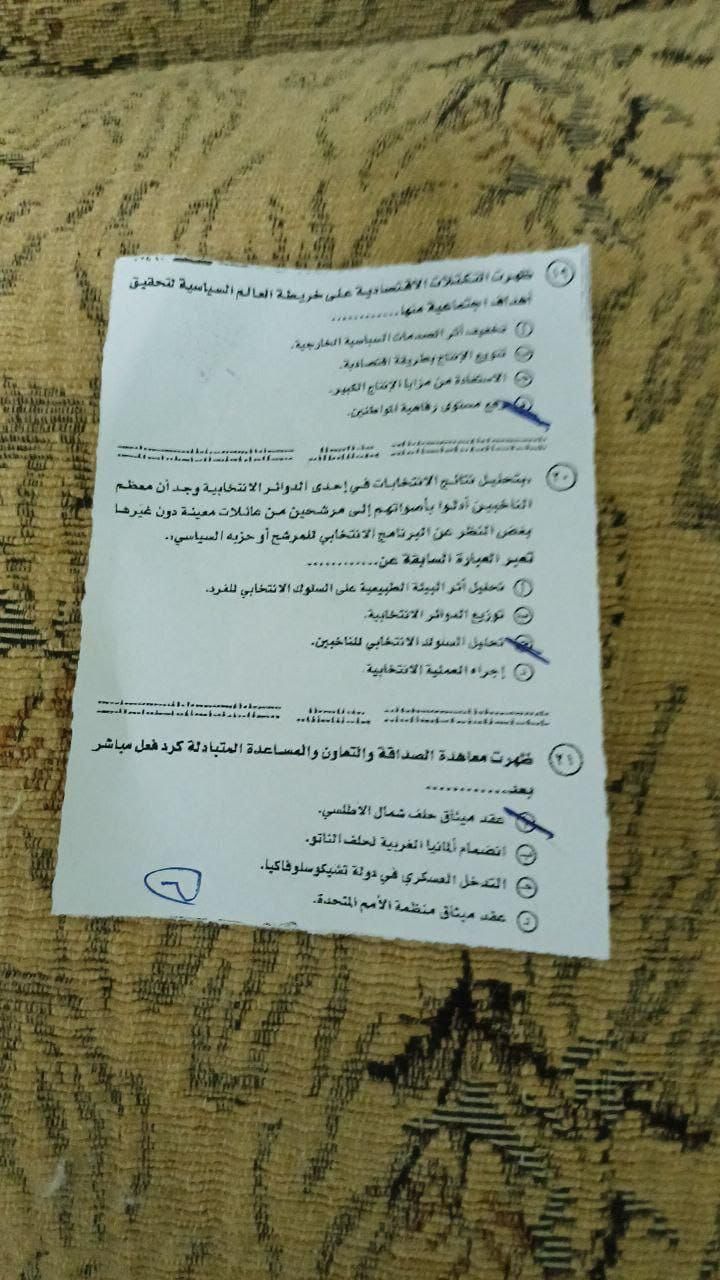 ١٩ ظهرت التكتلات الاقتصادية على خريطة العالم السياسية لتحقيق
أهداف اجتماعية منها............
أ تخفيف أثر الصدمات السياسية الخارجية.
ب تنويع الإنتاج بطريقة اقتصادية.
ج الاستفادة من مزايا الإنتاج الكبير.
رفع مستوى رفاهية المواطنين.
٢٠ «بتحليل نتائج الانتخابات في إحدى الدوائر الانتخابية وجد أن معظم
الناخبين أدلوا بأصواتهم إلى مرشحين من عائلات معينة دون غيرها
بغض النظر عن البرنامج الانتخابي للمرشح أو حزبه السياسي».
تعبر العبارة السابقة عن............
أ تحليل أثر البيئة الطبيعية على السلوك الانتخابي للفرد.
ب توزيع الدوائر الانتخابية.
ج تحليل السلوك الانتخابي للناخبين.
د إجراء العملية الانتخابية.
٢١ ظهرت معاهدة الصداقة والتعاون والمساعدة المتبادلة كرد فعل مباشر
بعد............
أ عقد ميثاق حلف شمال الاطلسي.
ب انضمام ألمانيا الغربية لحلف الناتو.
ج التدخل العسكري في دولة تشيكوسلوفاكيا.
د عقد ميثاق منظمة الأمم المتحدة.